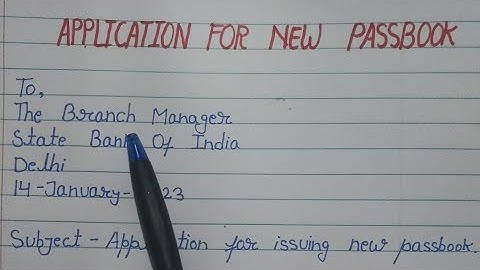 APPLICATION FOR NEW PASSBOOK
To,
The Branch Manager
State Bank Of India
Delhi
14-January- 23
Subject - App tion for issuing new passbook.